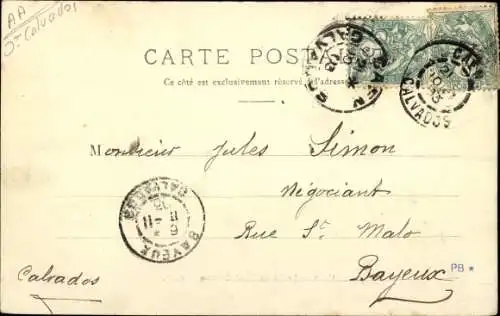 AA
Jt Calvados
CARTE POSTALE
Ce côté est exclusivement réservé à l'adresse
CAEN
CALVADOS
Monsieur Jules Simon
Négociant
Rue St Malo
Bayeux
PB *
Calvados
BAYEUX
CALVADOS
6
11